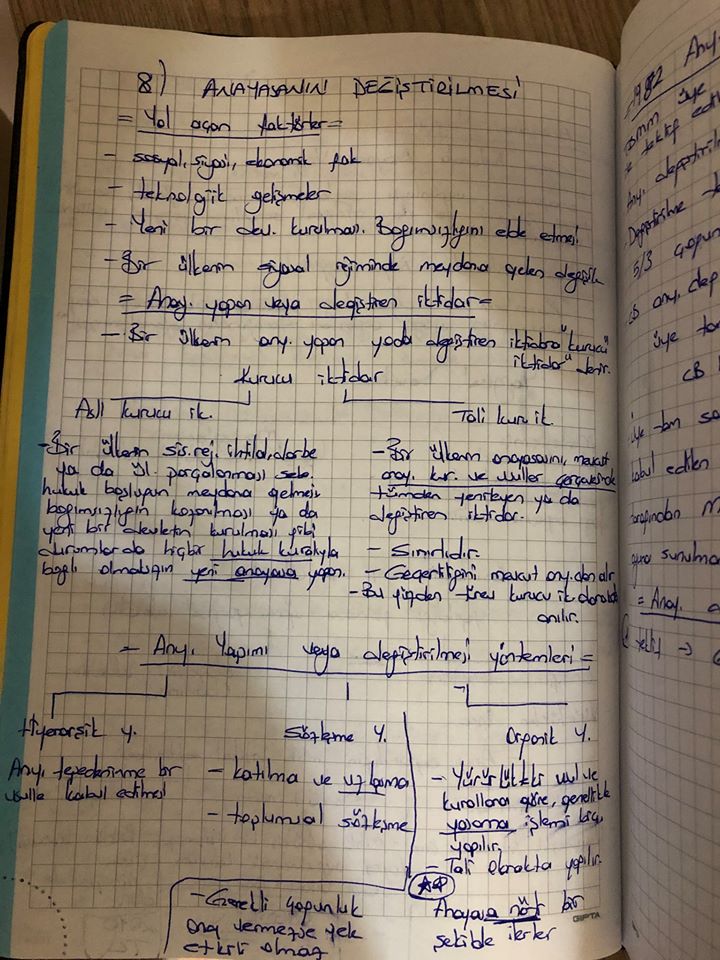 8) ANAYASANIN DEĞİŞTİRİLMESİ
= Yol açan faktörler =
- sosyal, siyasi, ekonomik fak
- teknolojik gelişmeler
- Yeni bir dev. kurulması. Bağımsızlığını elde etmesi
- Bir ülkenin siyasal rejiminde meydana gelen değişik
= Anay. yapan veya değiştiren iktidar =
- Bir ülkenin any. yapan yada değiştiren iktidara "kurucu
iktidar" denir.
Kurucu iktidar
Asli kurucu ik.
- Bir ülkenin sis. rej. ihtilal, darbe
ya da ül. parçalanması sebe.
hukuk boşluğun meydana gelmesi
bağımsızlığın kazanılması ya da
yeni bir devletin kurulması gibi
durumlarda hiçbir hukuk kuralıyla
bağlı olmaksızın yeni anayasa yapan.
Tali kur ik.
- Bir ülkenin anayasasını, mevcut
anay. kur. ve usuller çerçevesinde
tümden yenileyen ya da
değiştiren iktidar.
- Sınırlıdır.
- Geçerliliğini mevcut any. dan alır
- Bu yüzden türev kurucu ik olarakda
anılır.
= Any. Yapımı veya değiştirilmesi yöntemleri =
Hiyerarşik y.
Anyı tepedeninme bir
usulle kabul edilmesi
Sözleşme Y.
- katılma ve uzlaşma
- toplumsal sözleşme
- Gerekli çoğunluk
onay vermezse pek
etkili olmaz
Organik Y.
- Yürürlükteki usul ve
kurallara göre, genellikle
yasama işlemi
yapılır.
- Tali olarakta yapılır.
Anayasa nötr bir
şekilde ilerler
GIPTA
1982 Any
üye
teklif edil
Any. değiştiril
Değiştirilme
5/3 çoğun
any. değ
üye ta
CB
kabul edilen
tarafından M
sunulma
= Anay.